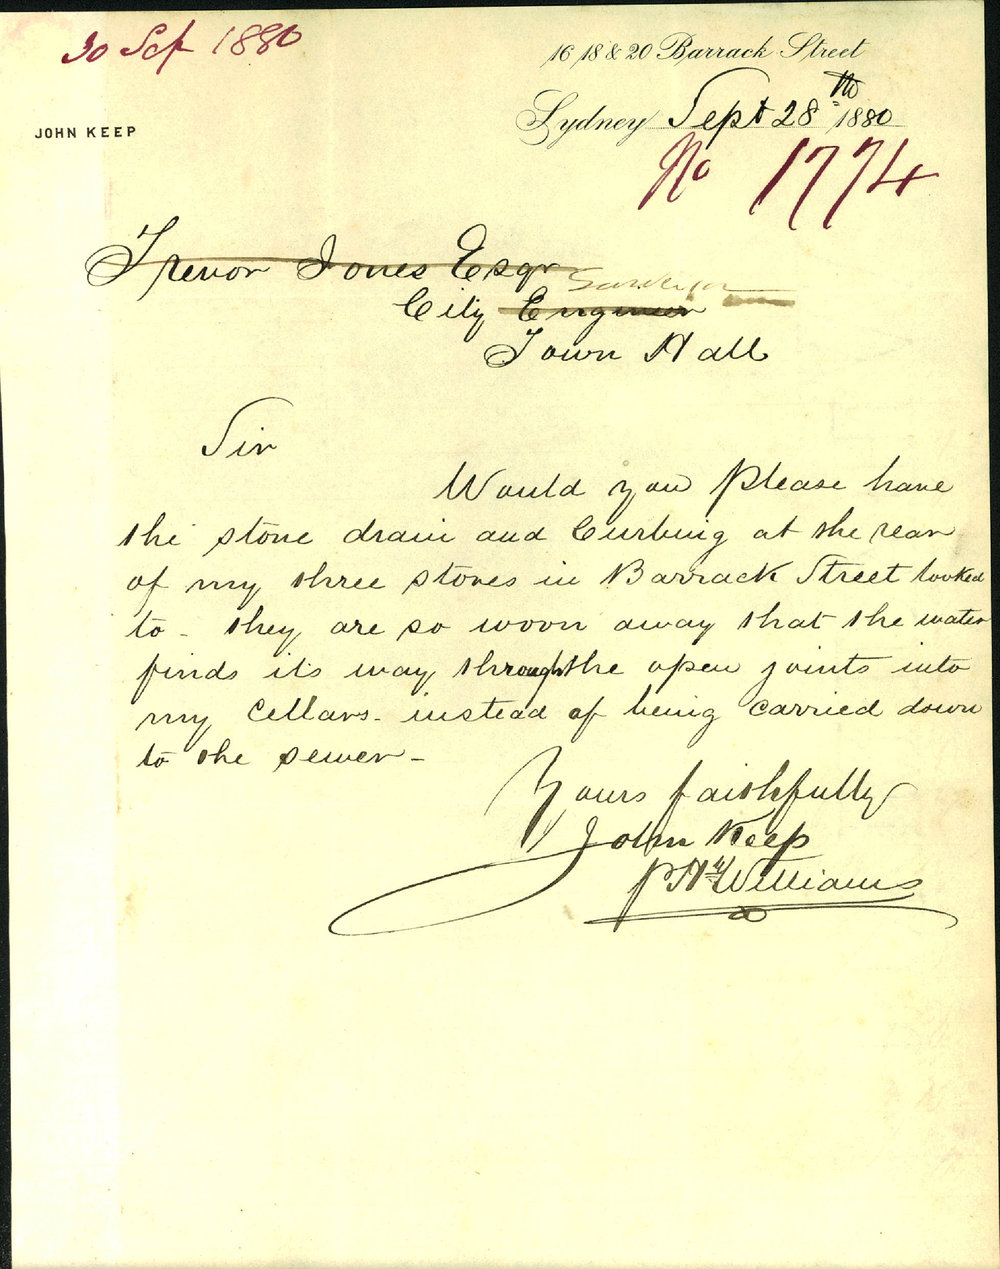 30 Sep 1880
16 18 & 20 Barrack Street
JOHN KEEP
Sydney Sept 28th 1880
No 1774
Trevor Jones Esqr
Surveyor
City Engineer
Town Hall
Sir
Would you please have
the stone drain and Curbing at the rear
of my three stores in Barrack Street looked
to - they are so woorn away that the water
finds its way through the open joints into
my Cellars - instead of being carried down
to the sewer -
Yours faithfully
John Keep
Williams